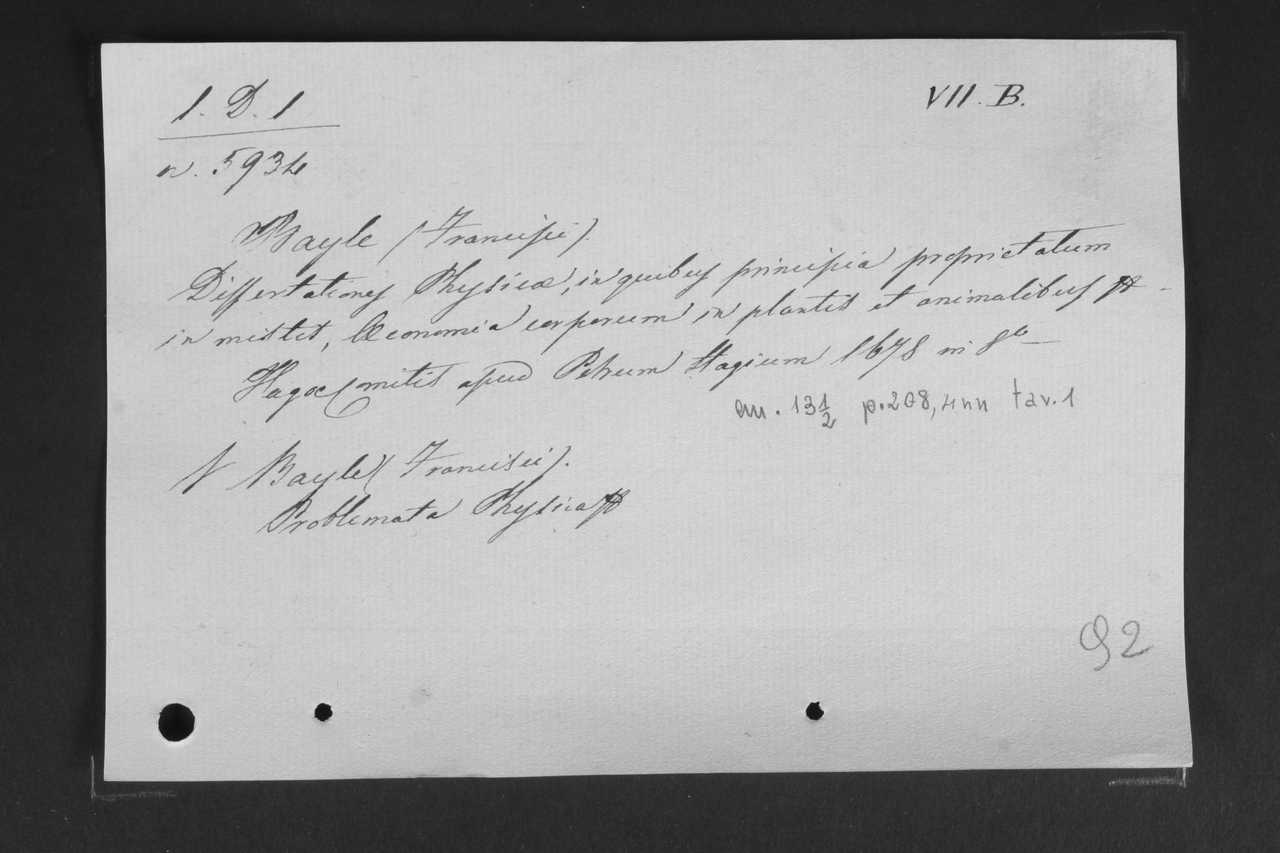 1. D. 1
VII. B.
n. 5934
Bayle (Francisci).
Dissertationes Physicæ, in quibus principia proprietatum
in mistis, Œconomia corporum in plantis et animalibus
Hagæ Comitis apud Petrum Hagium 1678 in 8º
cm. 13 1/2 p. 208, 4nn tav. 1
V Bayle (Francisci).
Problemata Physica
92